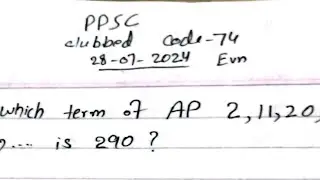 PPSC
clubbed code-74
28-07-2024 Evn
which term of AP 2, 11, 20,
.... is 290 ?